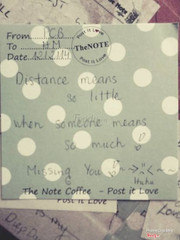 From PCB
To HM
Date
Post it Love
TheNOTE
Post it Love
Distance means
so little
when someone means
so much
Missing You
Huhu
The Note Coffee - Post it Love
Post it Love